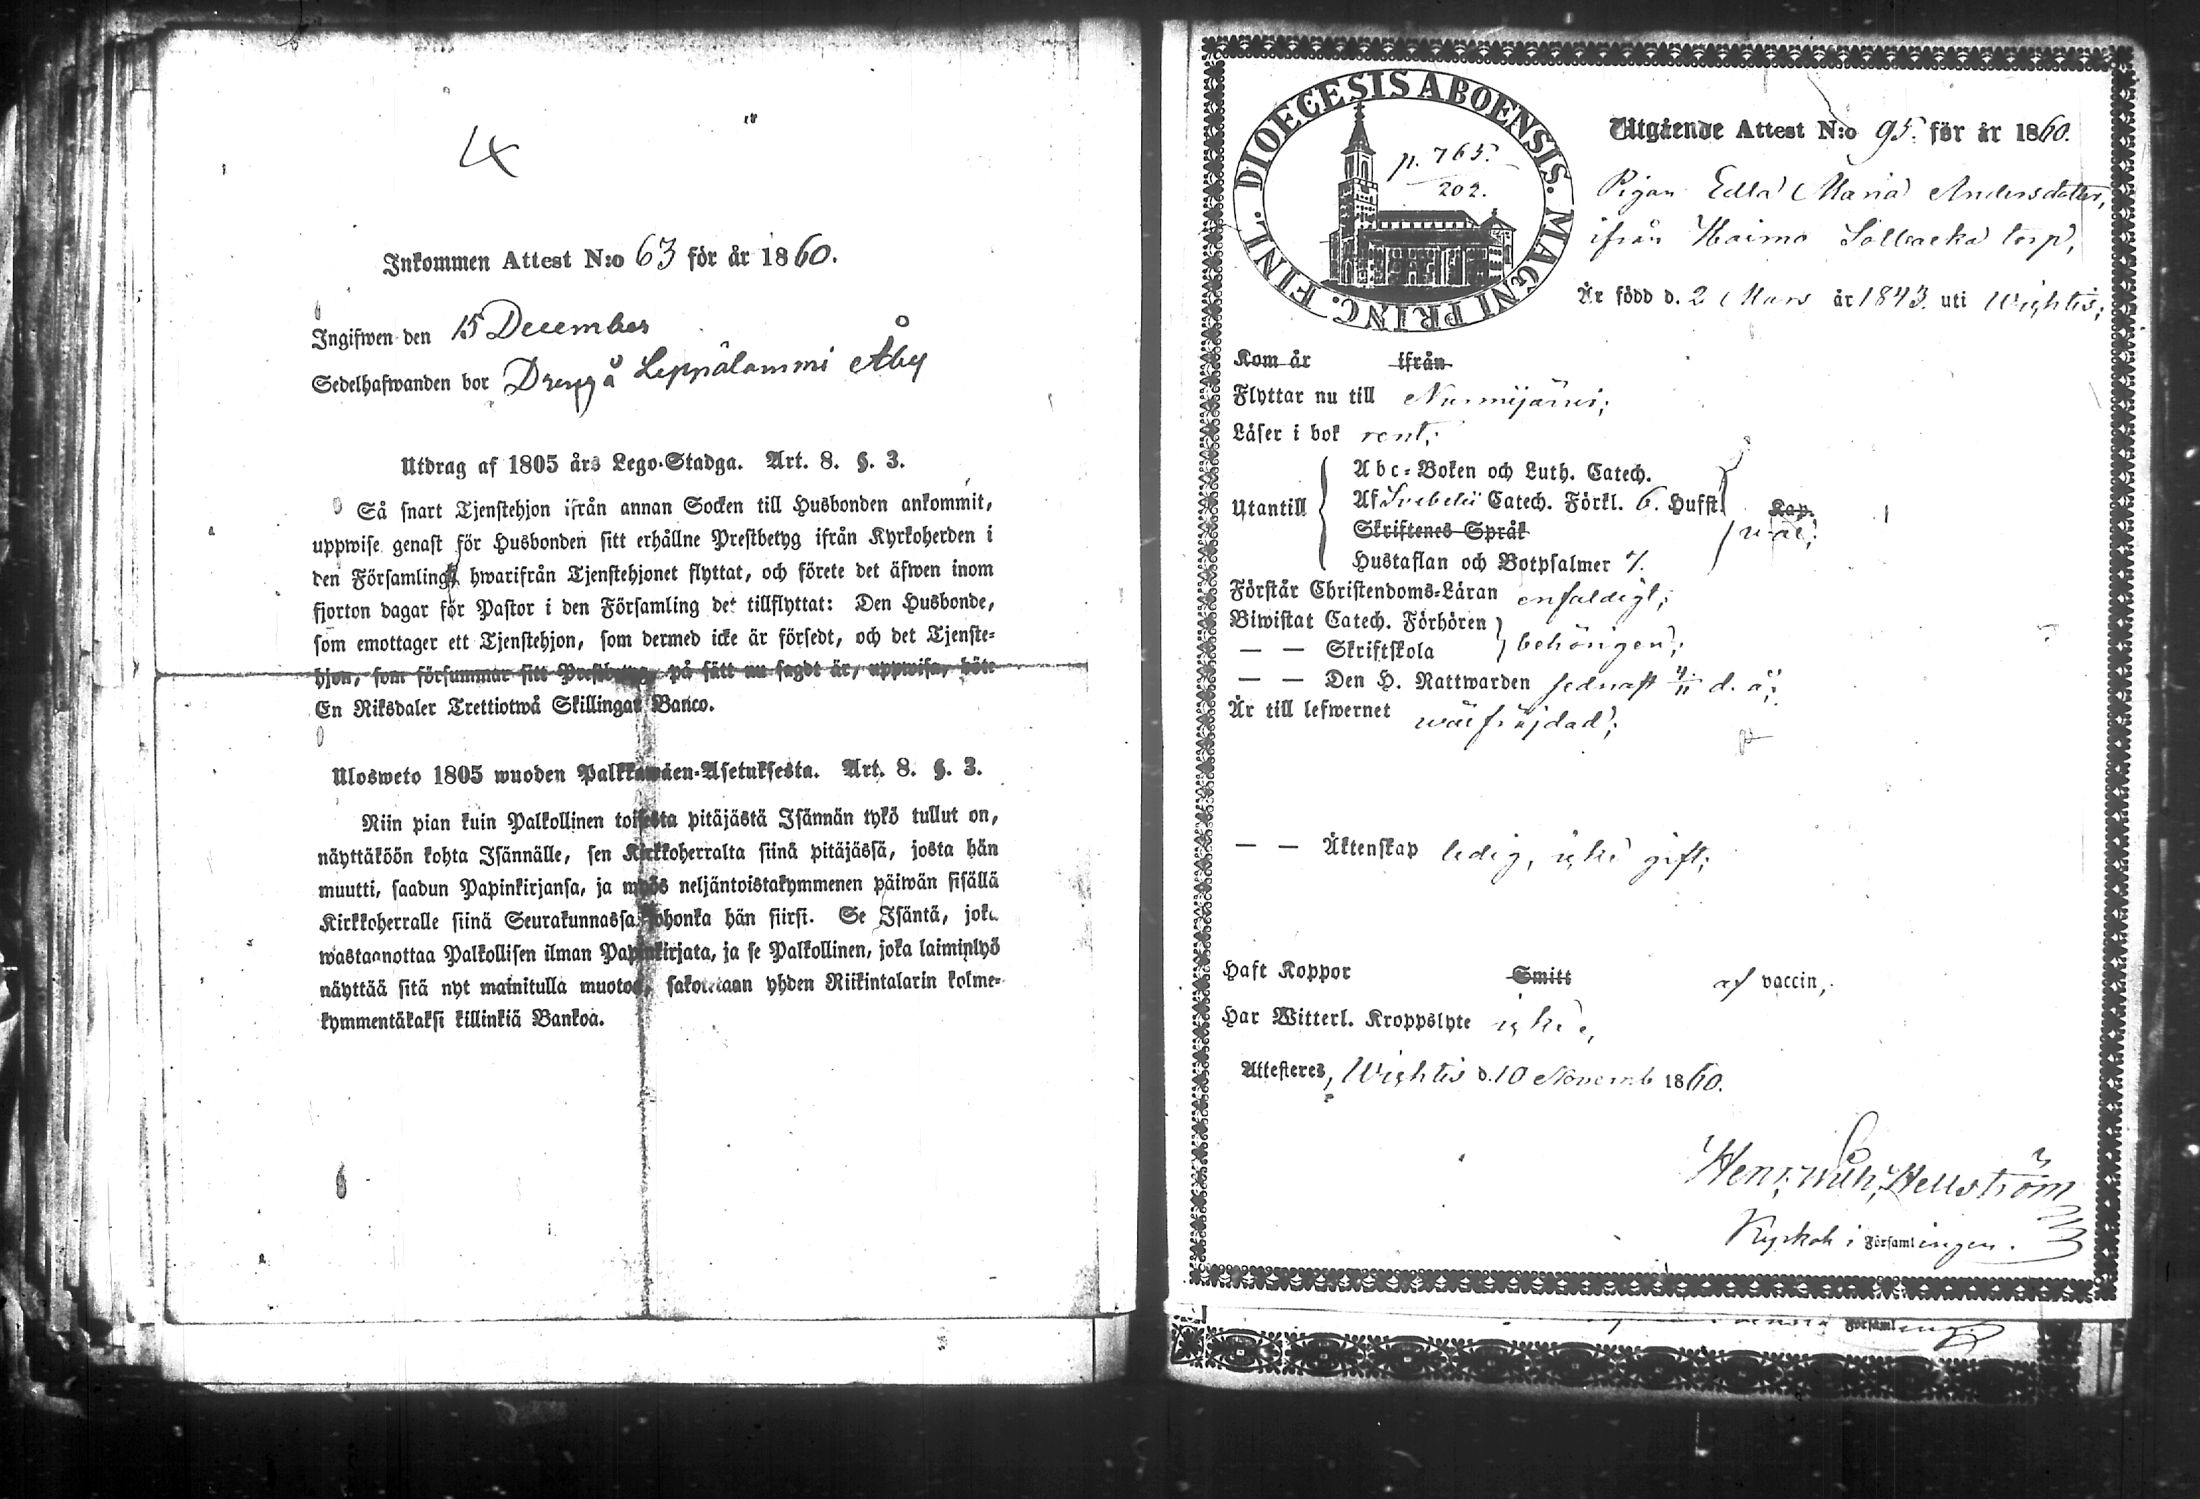 Inkommen Attest N:o 63 för år 1860.
Ingifwen den 15 December
Sedelhafwanden bor Dreng å Leppälammi Åby
Utdrag af 1805 års Lego-Stadga. Art. 8. §. 3.
Så snart Tjenstehjon ifrån annan Socken till Husbonden ankommit,
uppwise genast för Husbonden sitt erhållne Prestbetyg ifrån Kyrkoherden i
den Församling hwarifrån Tjenstehjonet flyttat, och förete det äfwen inom
fjorton dagar för Pastor i den Församling det tillflyttat: Den Husbonde,
som emottager ett Tjenstehjon, som dermed icke är försedt, och det Tjenste-
hjon, som försummar sitt Prestbetyg, på sätt nu sagdt är, uppwisa, böte
En Riksdaler Trettiotwå Skillingar Banco.
Ulosweto 1805 wuoden Palkkawäen-Asetuksesta. Art. 8. §. 3.
Niin pian kuin Palkollinen toisesta pitäjästä Isännän tykö tullut on,
näyttäköön kohta Isännälle, sen Kirkkoherralta siinä pitäjässä, josta hän
muutti, saadun Papinkirjansa, ja myös neljäntoistakymmenen päiwän sisällä
Kirkkoherralle siinä Seurakunnassa johonka hän siirsi. Se Isäntä, joka
wastaanottaa Palkollisen ilman Papinkirjata, ja se Palkollinen, joka laiminlyö
näyttää sitä nyt mainitulla muotoa, sakotetaan yhden Riikintalarin kolme-
kymmentäkaksi killinkiä Bankoa.
DIOECESIS ABOENSIS. MAGNI PRINC. FINL.
p. 765.
202.
Utgående Attest N:o 95. för år 1860.
Pigan Edla Maria Andersdotter,
ifrån Haimo Sällbacka torp,
Är född d. 2 Mars år 1843. uti Wichtis;
Kom år ifrån
Flyttar nu till Nurmijärvi;
Läser i bok rent;
Utantill
Abc-Boken och Luth. Catech.
Af Svebelii Catech. Förkl. 6. Hufst. Kap.
Skriftenes Språk wäl;
Hustaflan och Botpsalmer 7.
Förstår Christendoms-Läran enfaldigt;
Biwistat Catech. Förhören
— — Skriftskola behörigen;
— — Den H. Nattwarden sednast 4/11 d. å;
Är till lefwernet wälfräjdad;
— — Äktenskap ledig, icke gift;
Haft Koppor Smitt af vaccin,
Har Witterl. Kroppslyte icke,
Attesteres, Wichtis d. 10 Novemb 1860.
Henr. Wilh. Hellström
Kyrkoh i Församlingen.
Församling